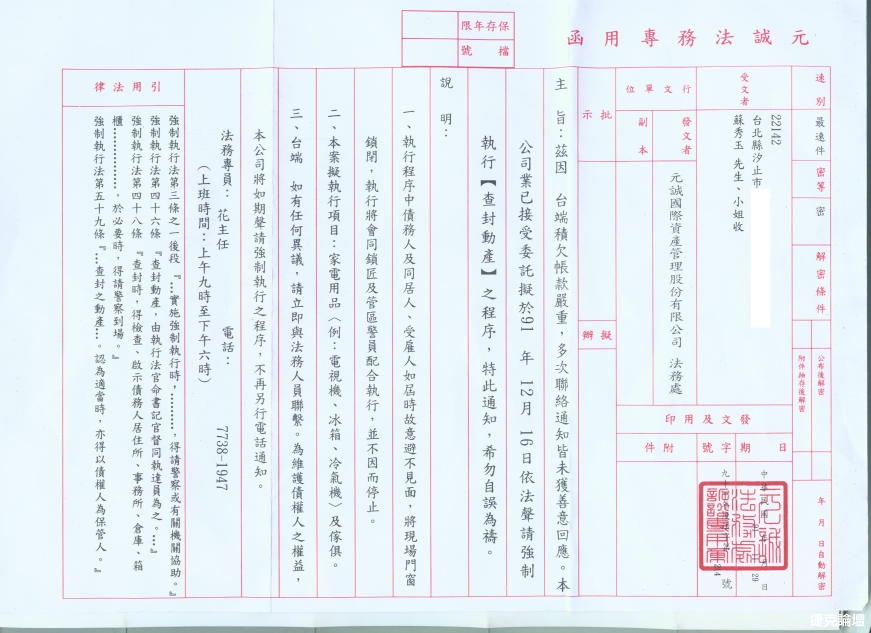 元誠法務專用函
保存年限
檔號
速別
最速件
密等
密
解密條件
公布後解密
附件抽存後解密
年月日自動解密
受文者
22142
台北縣汐止市
蘇秀玉 先生、小姐收
行文單位
發文者
副本
元誠國際資產管理股份有限公司 法務處
發文及用印
日期
字號
附件
中華民國
號
批示
擬辦
主旨：茲因 台端積欠帳款嚴重，多次聯絡通知皆未獲善意回應。本
公司業已接受委託擬於91 年 12 月 16 日依法聲請強制
執行【查封動產】之程序，特此通知，希勿自誤為禱。
說明：
一、執行程序中債務人及同居人、受雇人如屆時故意避不見面，將現場門窗
鎖閉，執行將會同鎖匠及管區警員配合執行，並不因而停止。
二、本案擬執行項目：家電用品〈例：電視機、冰箱、冷氣機〉及傢俱。
三、台端 如有任何異議，請立即與法務人員聯繫。為維護債權人之權益，
本公司將如期聲請強制執行之程序，不再另行電話通知。
法務專員： 花主任 電話： 7738-1947
（上班時間：上午九時至下午六時）
引用法律
強制執行法第三條之一後段『…實施強制執行時，………，得請警察或有關機關協助。』
強制執行法第四十六條 『查封動產，由執行法官命書記官督同執達員為之。…』
強制執行法第四十八條 『查封時，得檢查、啟示債務人居住所、事務所、倉庫、箱
櫃………………，於必要時，得請警察到場。』
強制執行法第五十九條『…查封之動產…。認為適當時，亦得以債權人為保管人。』
捷克論壇